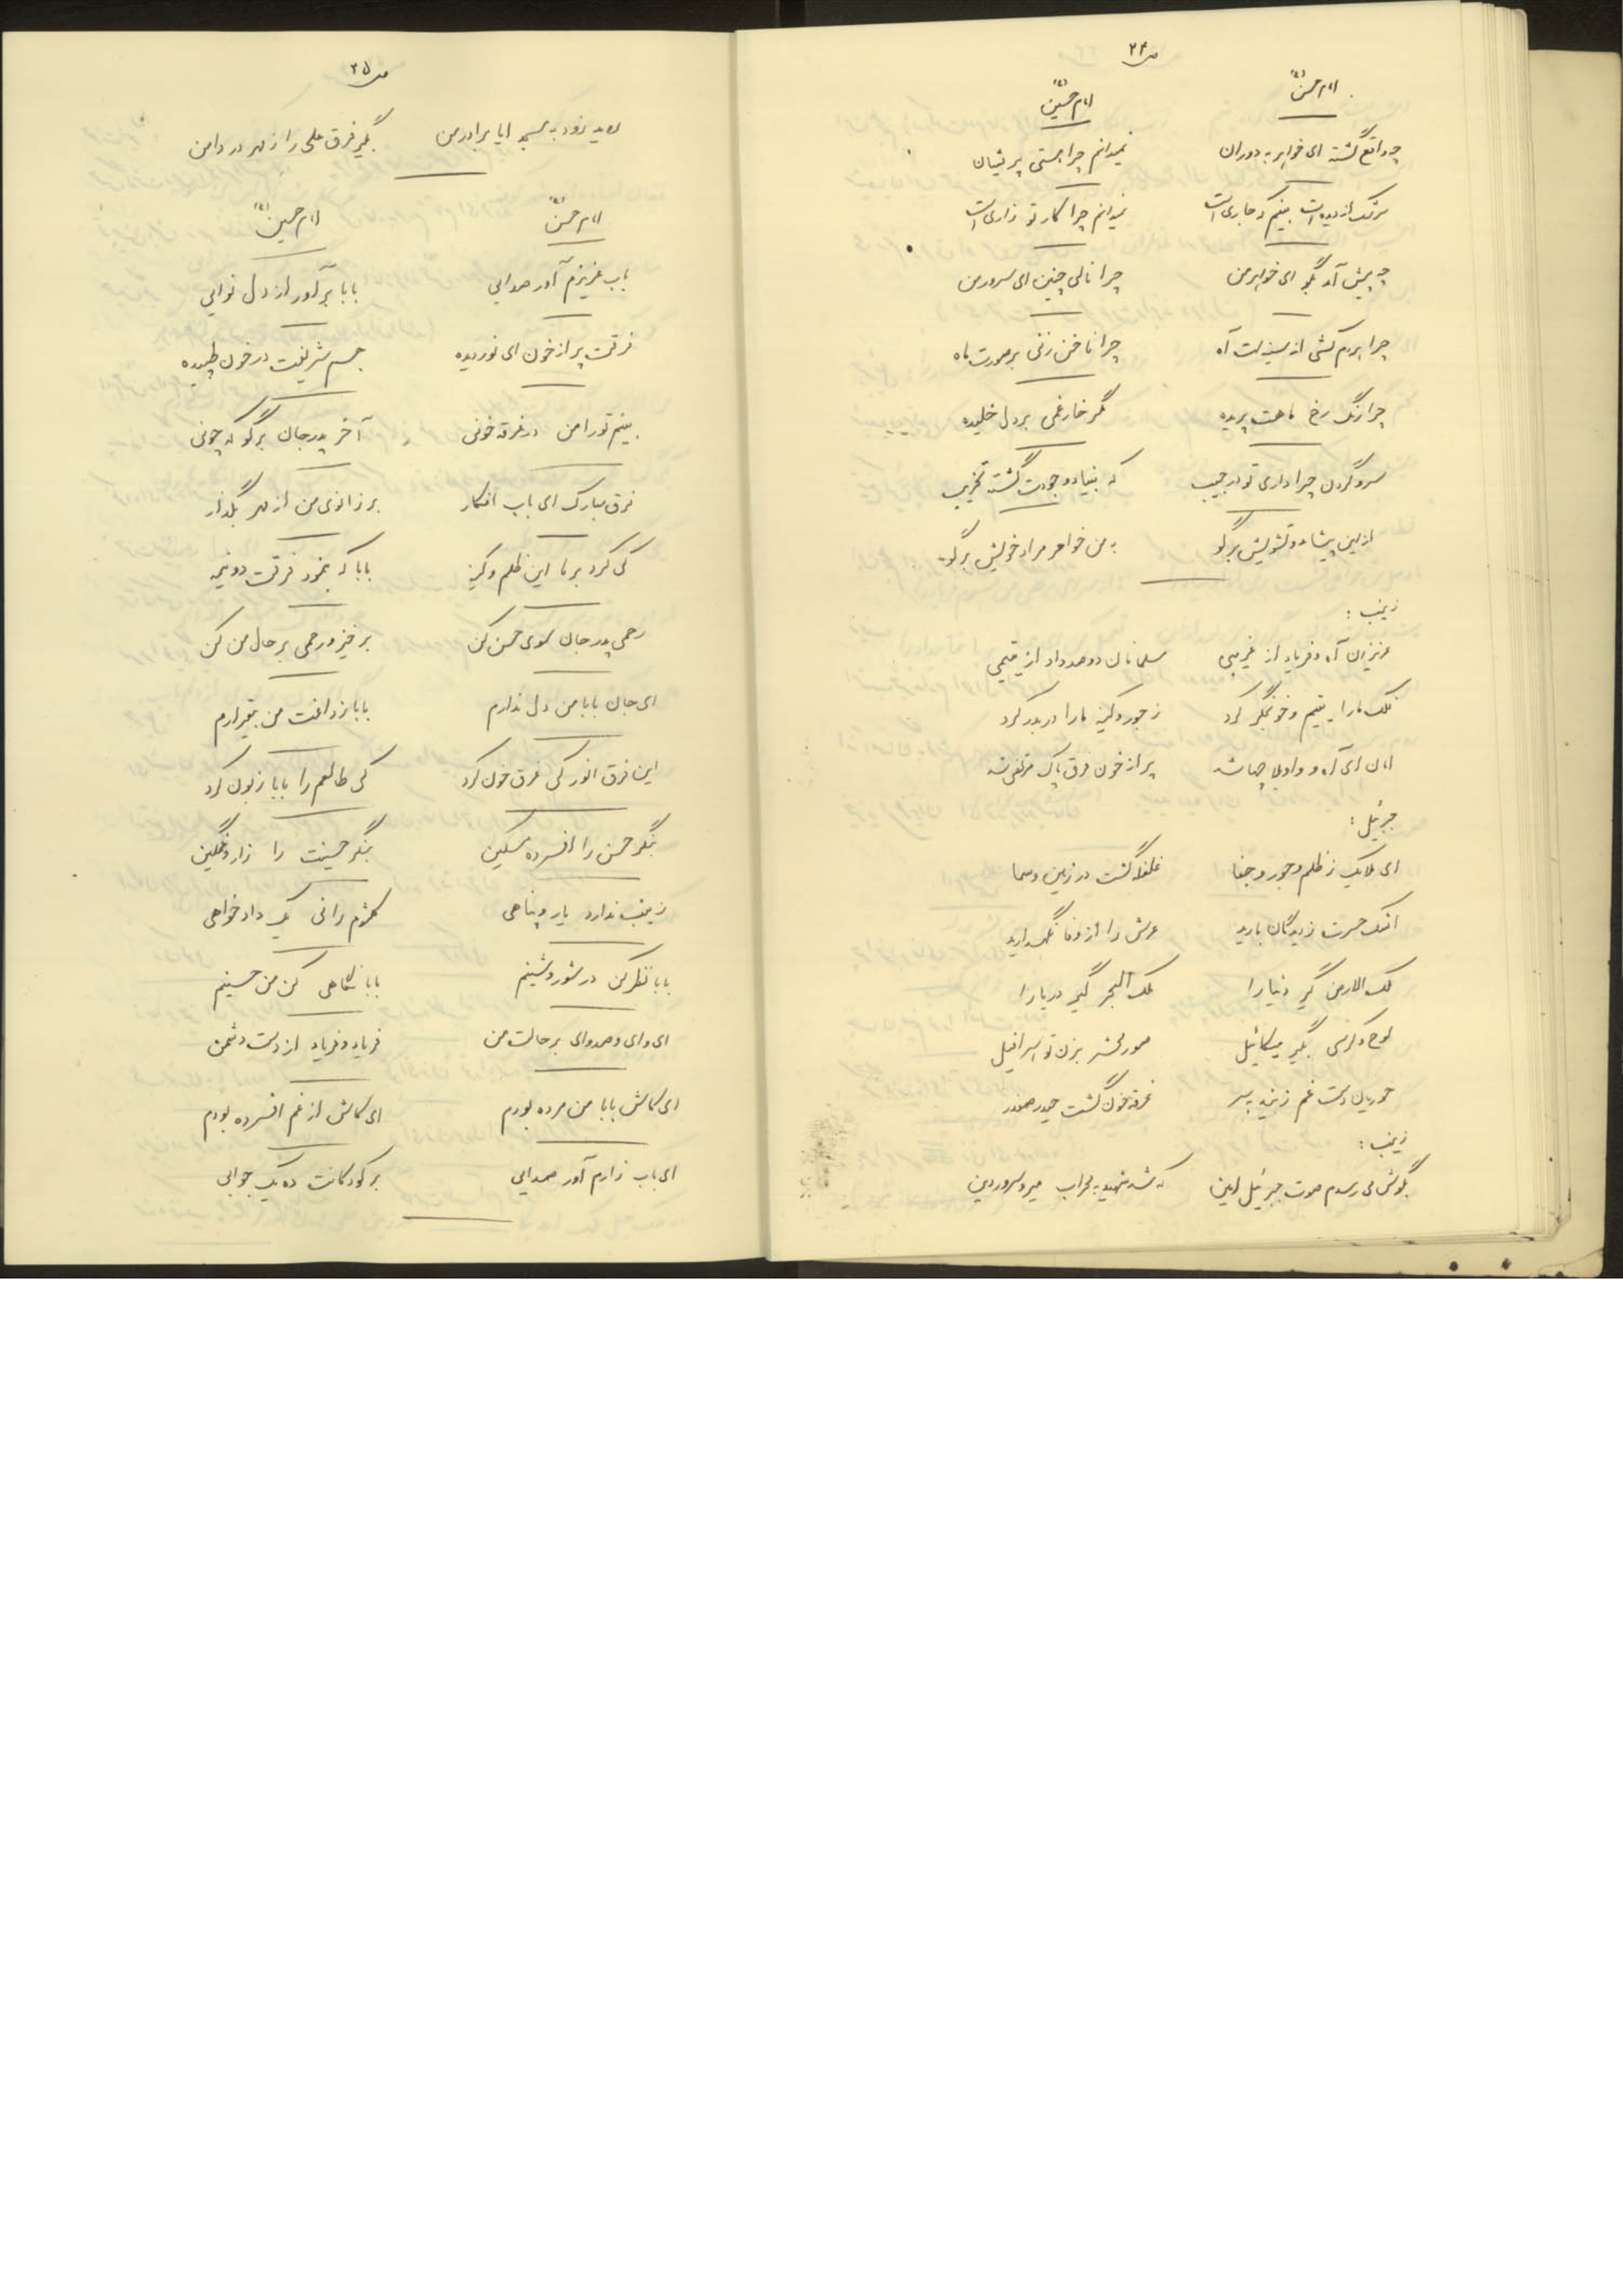 ص ۲۴
امام حسن ع امام حسین ع
چه واقع گشته ای خواهر به دوران نمیدانم چرا هستی پریشان
سرشک از دیده ات بینم که جاری است نمیدانم چرا کار تو زاری است
چه پیش آمد بگو ای خواهر من چرا نالی چنین ای سرور من
چرا هردم کشی از سینه ات آه چرا ناخن زنی بر صورت ماه
چرا رنگ رخ ماهت پریده مگر خار غمی بر دل خلیده
سر و گردن چرا داری تو در جیب که بنیاد وجودت گشته تخریب
از این تشویش برگو به من خواهر مراد خویش برگو
زینب :
عزیزان آه و فریاد از غریبی مسلمانان دو صد داد از یتیمی
فلک ما را یتیم و خونجگر کرد ز جور و کینه ما را دربدر کرد
امان ای آه و واویلا چها شد پر از خون فرق پاک مرتضی شد
جبرئیل :
ای ملایک ز ظلم و جور و جفا غلغله گشت در زمین و سما
اشک حسرت ز دیدگان بارید عرش را از وفا نگهدارید
ملک الارض گیر دنیا را ملک البحر گیر دریا را
لوح و کرسی بگیر میکائیل صور محشر بزن تو اسرافیل
حوریان دست غم زنید به سر غرقه خون گشت حیدر صفدر
زینب :
بگوش می رسدم صوت جبرئیل امین که شد شهید به محراب میر و سرور دین
ص ۲۵
روید زود به مسجد ایا برادر من بگیر فرق علی را ز مهر در دامن
امام حسن ع امام حسین ع
باب عزیزم آور صدایی بابا برآور از دل نوایی
فرقت پر از خون ای نور دیده جسم شریفت در خون طپیده
بینم تو را من در غرقه خونی آخر پدر جان برگو که چونی
فرق مبارک ای باب افکار بر زانوی من از مهر بگذار
کی کرد بر ما این ظلم و کینه بابا که بنمود فرقت دو نیمه
رحمی پدر جان سوی حسن کن برخیز و رحمی بر حال من کن
ای جان بابا من دل ندارم بابا ز داغت من بیقرارم
این فرق انور کی غرق خون کرد کی طالعم را بابا زبون کرد
بنگر حسن را افسرده مسکین بنگر حسینت را زار و غمگین
زینب ندارد یار و پناهی کلثوم رانی یک دادخواهی
بابا نظر کن در شور و شینم بابا نگاهی کن من حسینم
ای وای و صد وای بر حالت من فریاد و فریاد از دست دشمن
ای کاش بابا من مرده بودم ای کاش از غم افسرده بودم
ای باب زارم آور صدایی بر کودکانت ده یک جوابی